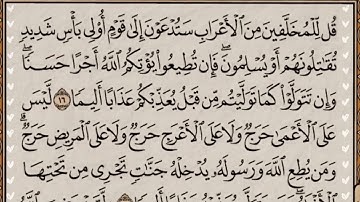 قُل لِّلْمُخَلَّفِينَ مِنَ ٱلْأَعْرَابِ سَتُدْعَوْنَ إِلَىٰ قَوْمٍ أُو۟لِى بَأْسٍ شَدِيدٍ
تُقَـٰتِلُونَهُمْ أَوْ يُسْلِمُونَ ۖ فَإِن تُطِيعُوا۟ يُؤْتِكُمُ ٱللَّهُ أَجْرًا حَسَنًا ۖ
وَإِن تَتَوَلَّوْا۟ كَمَا تَوَلَّيْتُم مِّن قَبْلُ يُعَذِّبْكُمْ عَذَابًا أَلِيمًا ۝١٦ لَّيْسَ
عَلَى ٱلْأَعْمَىٰ حَرَجٌ وَلَا عَلَى ٱلْأَعْرَجِ حَرَجٌ وَلَا عَلَى ٱلْمَرِيضِ حَرَجٌ ۗ
وَمَن يُطِعِ ٱللَّهَ وَرَسُولَهُۥ يُدْخِلْهُ جَنَّـٰتٍ تَجْرِى مِن تَحْتِهَا